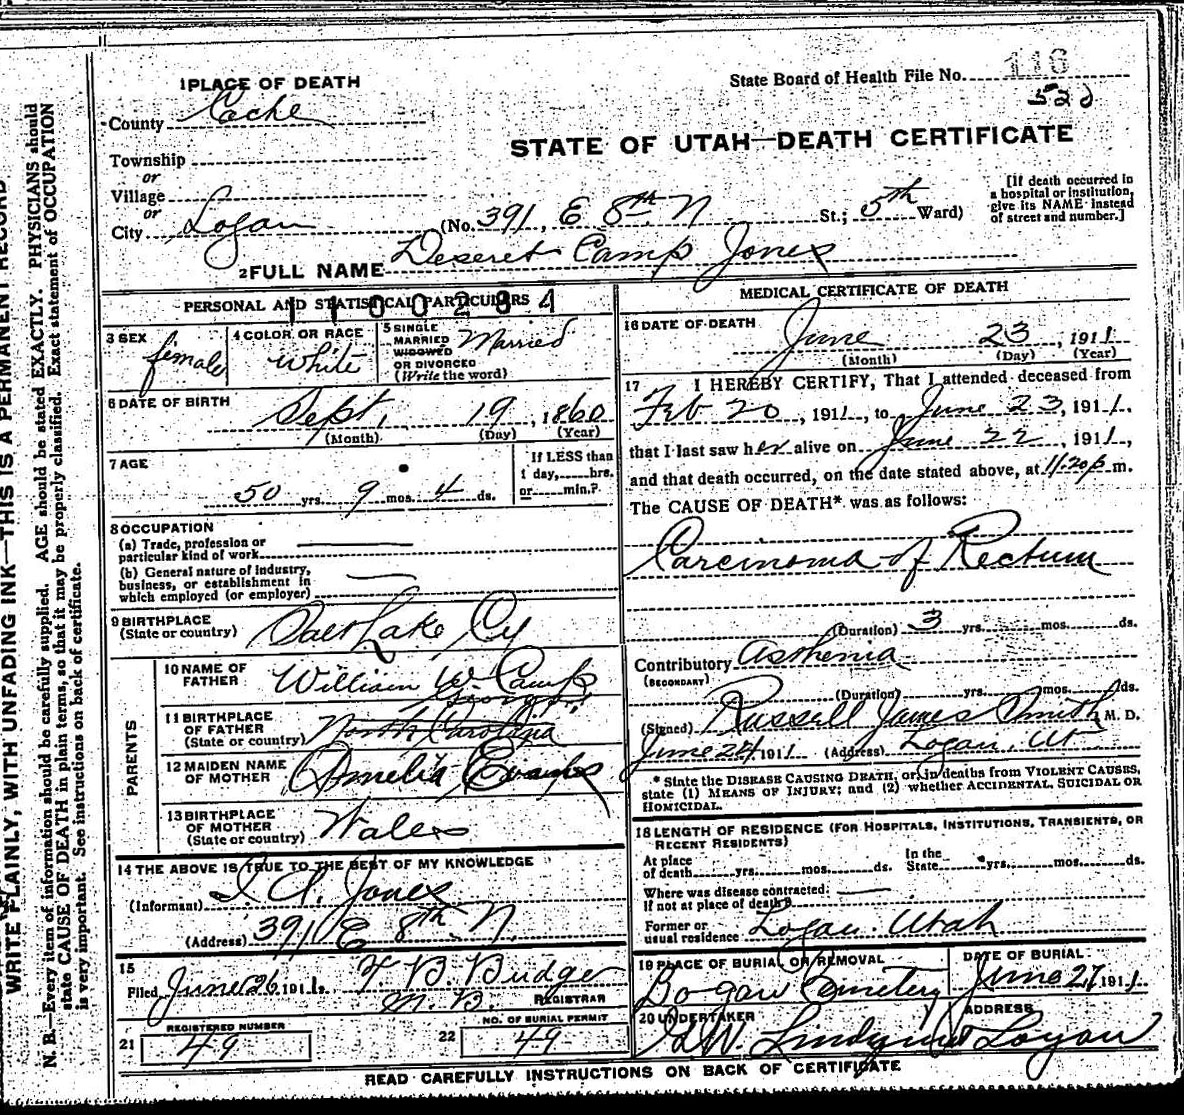 1 PLACE OF DEATH
County Cache
Township
or
Village
or
City Logan (No. 391, E 8th N St.; 5th Ward)
State Board of Health File No. 116
520
STATE OF UTAH—DEATH CERTIFICATE
[If death occurred in
a hospital or institution,
give its NAME instead
of street and number.]
2 FULL NAME Deseret Camp Jones
PERSONAL AND STATISTICAL PARTICULARS
1100284
3 SEX
female
4 COLOR OR RACE
white
5 SINGLE
MARRIED
WIDOWED
OR DIVORCED
(Write the word)
Married
6 DATE OF BIRTH
Sept. 19, 1860
(Month) (Day) (Year)
7 AGE
50 yrs. 9 mos. 4 ds.
If LESS than
1 day, hrs.
or min.?
8 OCCUPATION
(a) Trade, profession or
particular kind of work
(b) General nature of industry,
business, or establishment in
which employed (or employer)
9 BIRTHPLACE
(State or country) Salt Lake Cy
PARENTS
10 NAME OF
FATHER William W Camp
11 BIRTHPLACE
OF FATHER
(State or country) Georgia
North Carolina
12 MAIDEN NAME
OF MOTHER Amelia Evans
13 BIRTHPLACE
OF MOTHER
(State or country) Wales
14 THE ABOVE IS TRUE TO THE BEST OF MY KNOWLEDGE
(Informant) Jones
(Address) 391 E 8th N.
15
Filed June 26 1911. Budge
REGISTRAR
REGISTERED NUMBER
21 49
NO. OF BURIAL PERMIT
22 49
MEDICAL CERTIFICATE OF DEATH
16 DATE OF DEATH
June 23, 1911
(Month) (Day) (Year)
17 I HEREBY CERTIFY, That I attended deceased from
Feb 20, 1911, to June 23, 1911.
that I last saw her alive on June 22, 1911,
and that death occurred, on the date stated above, at 11.20 p m.
The CAUSE OF DEATH* was as follows:
Carcinoma of Rectum
(Duration) 3 yrs. mos. ds.
Contributory Asthenia
(SECONDARY)
(Duration) yrs. mos. ds.
(Signed) Russell James Smith M. D.
June 24 1911 (Address) Logan, Ut
* State the DISEASE CAUSING DEATH, or, in deaths from VIOLENT CAUSES,
state (1) MEANS OF INJURY; and (2) whether ACCIDENTAL, SUICIDAL OR
HOMICIDAL.
18 LENGTH OF RESIDENCE (FOR HOSPITALS, INSTITUTIONS, TRANSIENTS, OR
RECENT RESIDENTS)
At place
of death yrs. mos. ds.
In the
State yrs. mos. ds.
Where was disease contracted:
If not at place of death?
Former or
usual residence Logan. Utah
19 PLACE OF BURIAL OR REMOVAL
Logan Cemetery
DATE OF BURIAL
June 27, 1911
20 UNDERTAKER
ADDRESS
Logan
READ CAREFULLY INSTRUCTIONS ON BACK OF CERTIFICATE
WRITE PLAINLY, WITH UNFADING INK—THIS IS A PERMANENT RECORD
N. B.—Every item of information should be carefully supplied. AGE should be stated EXACTLY. PHYSICIANS should
state CAUSE OF DEATH in plain terms, so that it may be properly classified. Exact statement of OCCUPATION
is very important. See instructions on back of certificate.